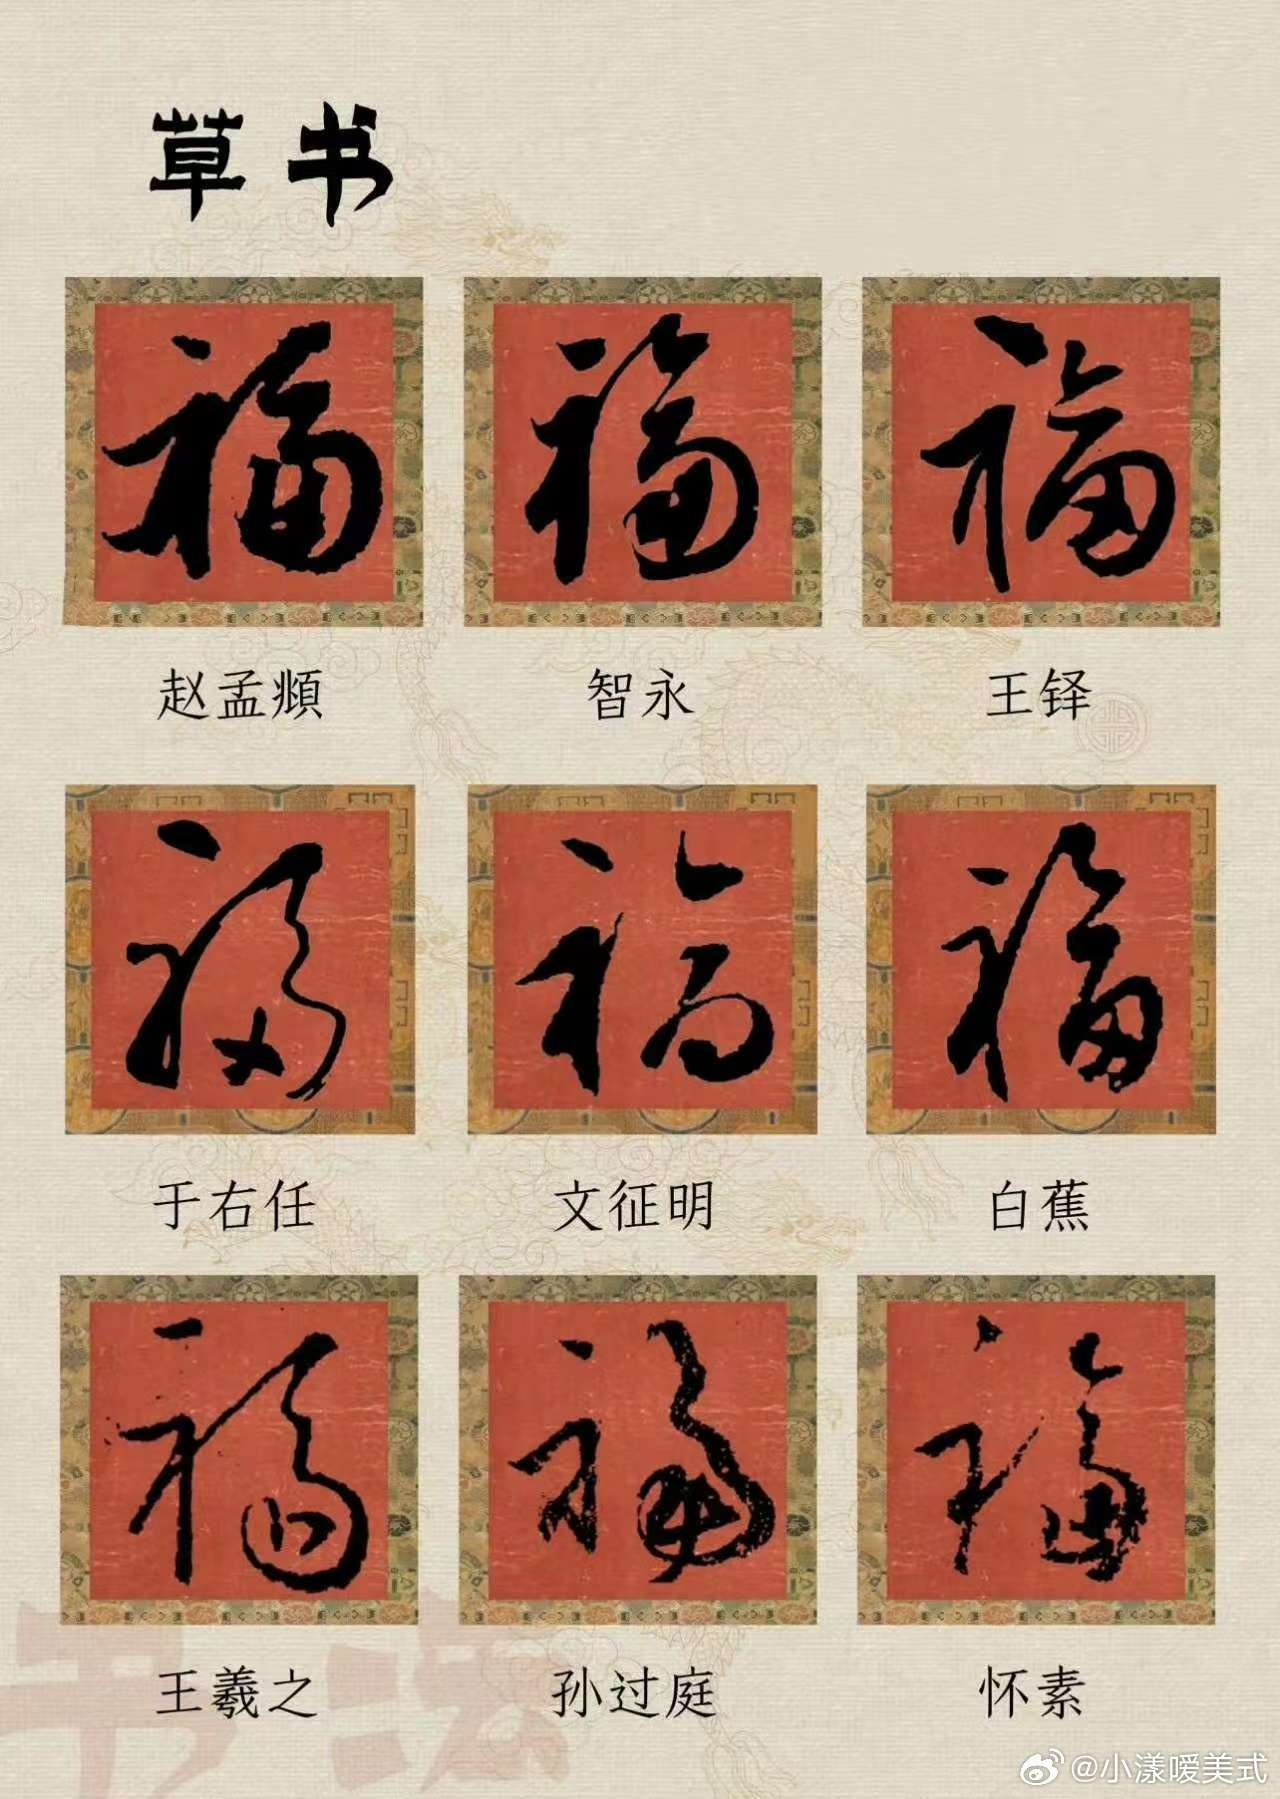 草书
福 福 福
赵孟頫 智永 王铎
福 福 福
于右任 文征明 白蕉
福 福 福
王羲之 孙过庭 怀素
@小漾嗳美式